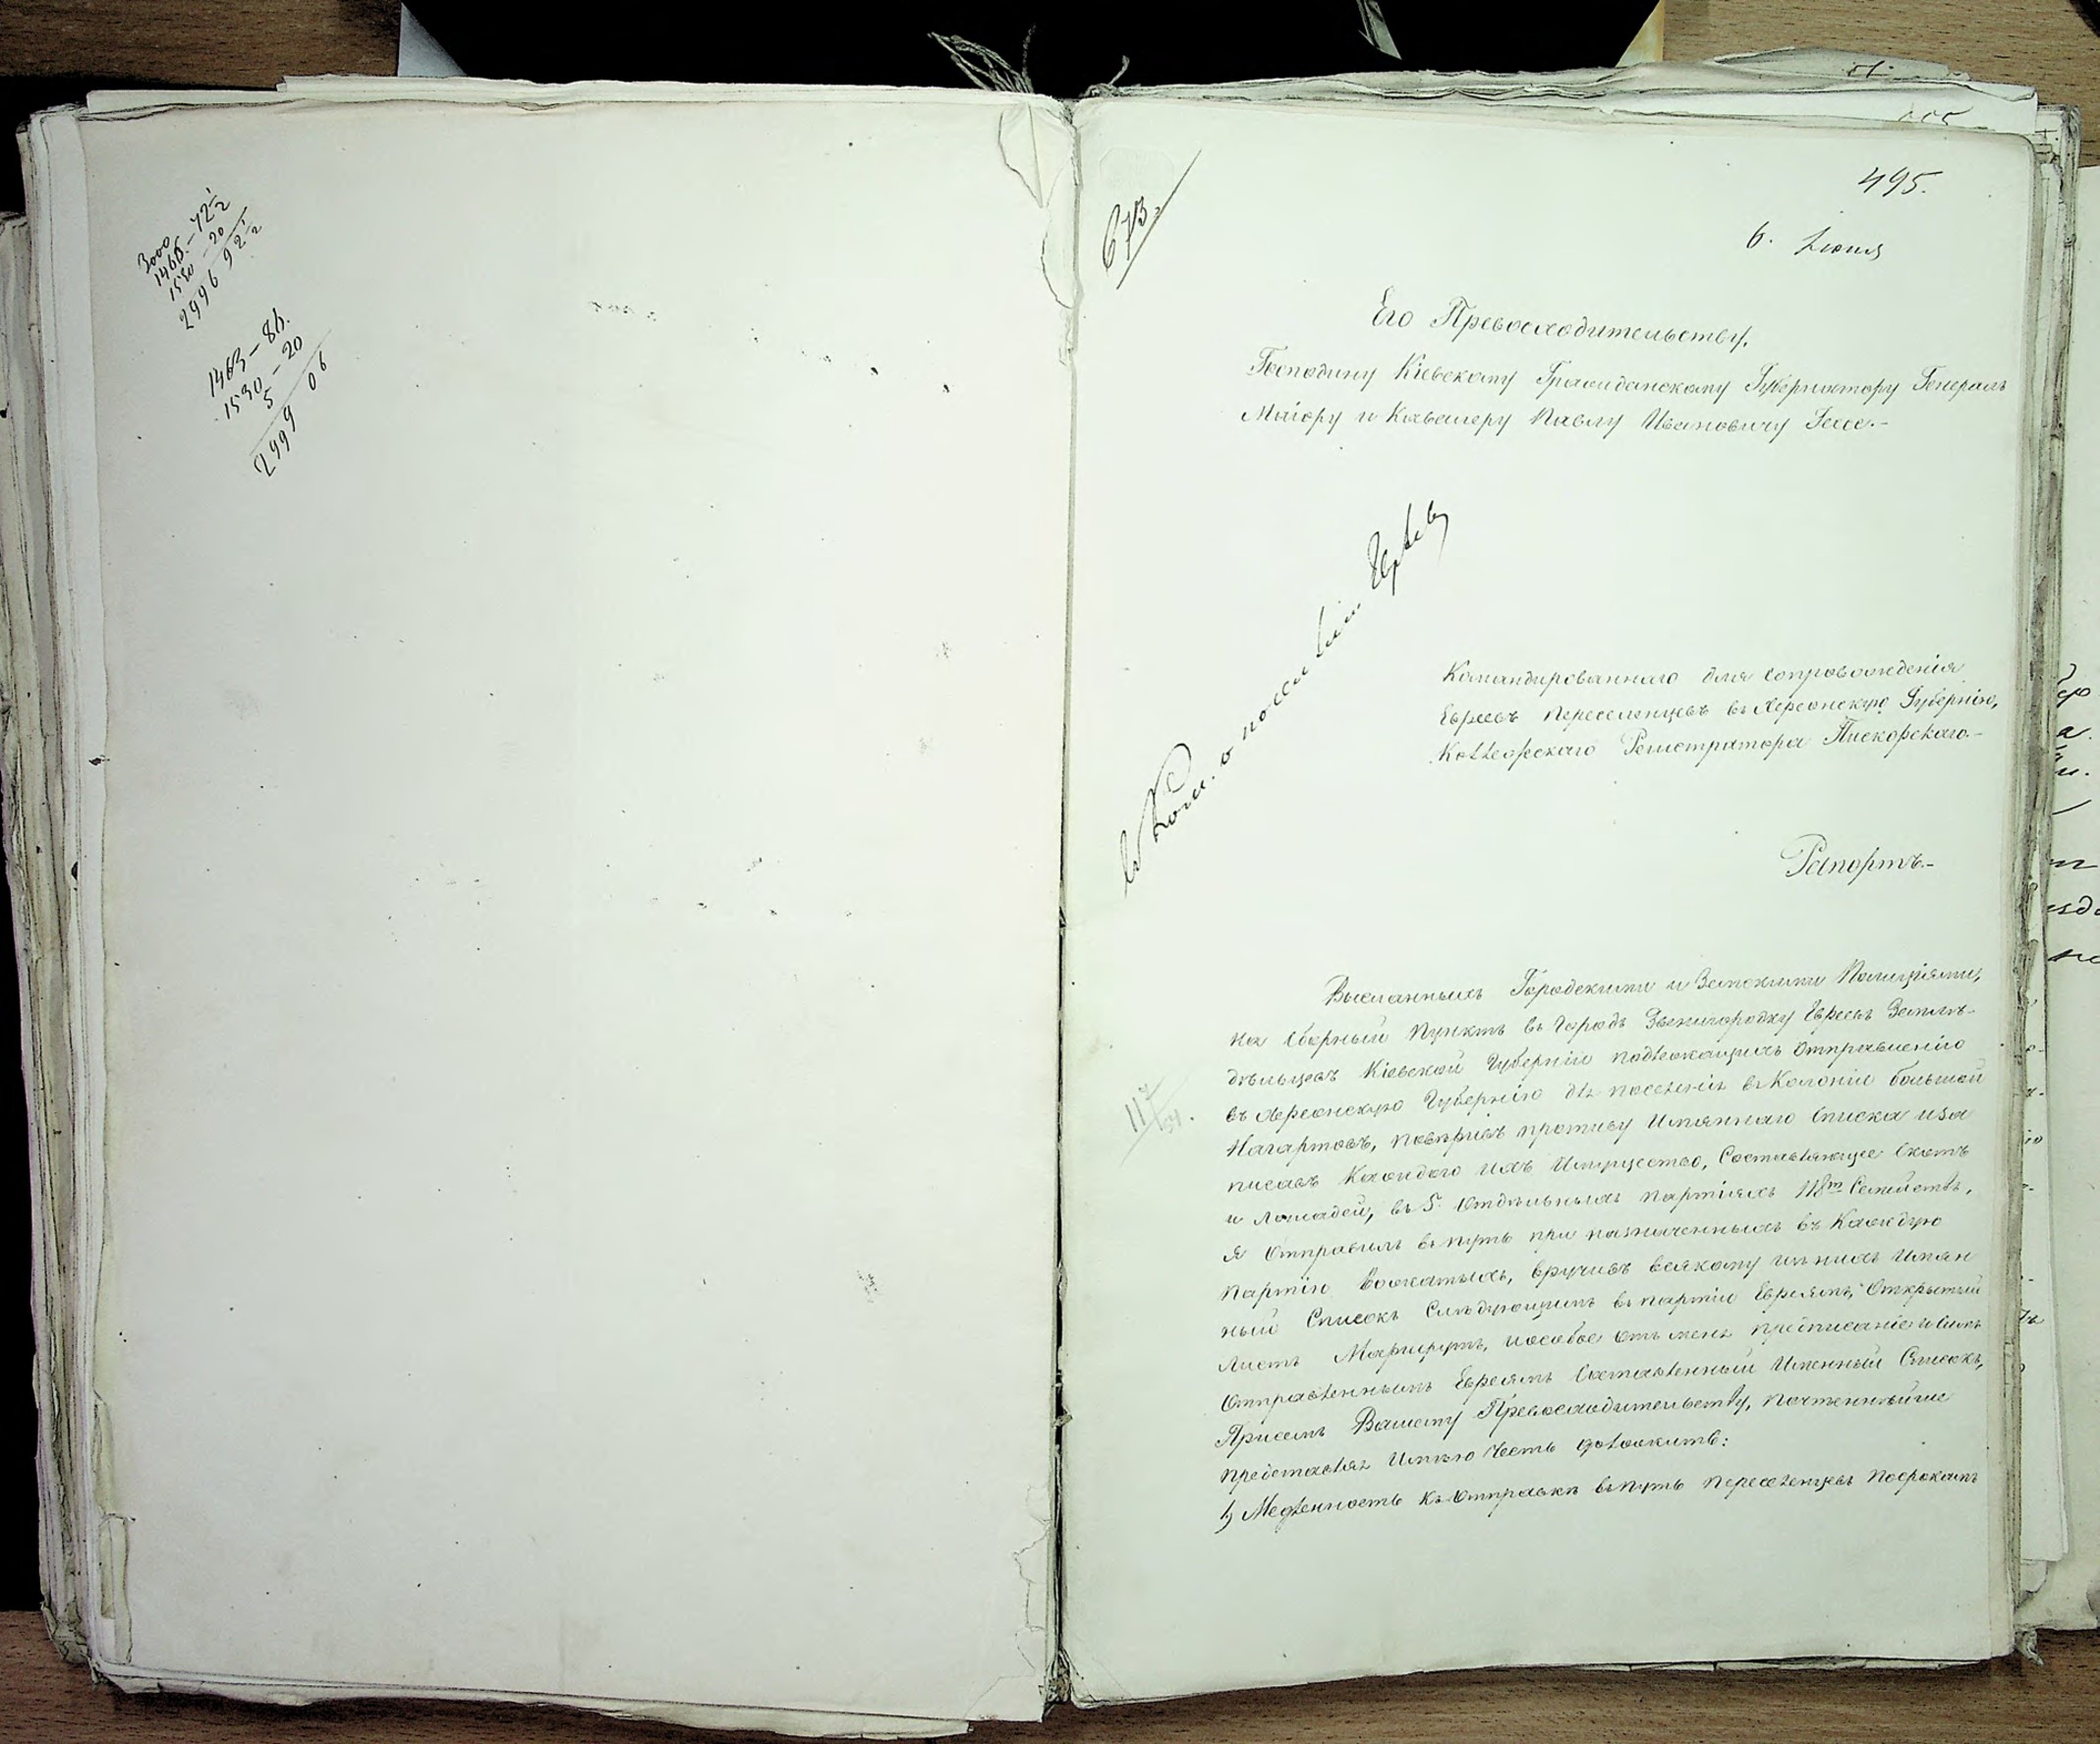 3000
1466.-72½
1530 - 20
2996 92½
1463 - 86.
1530 - 20
5
2999 06
673
495.
6. Июня
Его Превосходительству,
Господину Кіевскому Гражданскому Губернатору Генералъ
Маіору и Кавалеру Павлу Ивановичу Гессе.-
о поселеніи Евреевъ
Командированнаго для сопровожденія
Евреевъ переселенцевъ въ Херсонскую Губернію,
Коллежскаго Регистратора Пискорскаго.-
Рапортъ.-
Высланныхъ Городскими и Земскими Полиціями,
на Сборный Пунктъ въ городъ Звенигородку Евреевъ Земле-
дѣльцевъ Кіевской Губерніи подлежащихъ отправленію
въ Херсонскую Губернію для поселенія въ Колоніи большой
Нагартовъ, повѣривъ противу Имяннаго Списка иза
писавъ Каждаго ихъ Имущество, Составляющее Скотъ
и лошадей, въ 5. Отдѣльныхъ партіяхъ 118ᵐ Семействъ,
я Отправилъ въ путь при назначенныхъ въ Каждую
партію Вожатыхъ, вручивъ всякому изъ нихъ Имян
ный Списокъ Слѣдующимъ въ партіи Евреямъ, Открытый
листъ Маршрутъ, и особое отъ меня предписаніе
Отправленнымъ Евреямъ Составленный Именный Списокъ,
При семъ Вашему Превосходительству, почтеннѣйше
представляя Имѣю Честь доложить:
1) Медленность къ Отправкѣ въ путь переселенцевъ по срокамъ